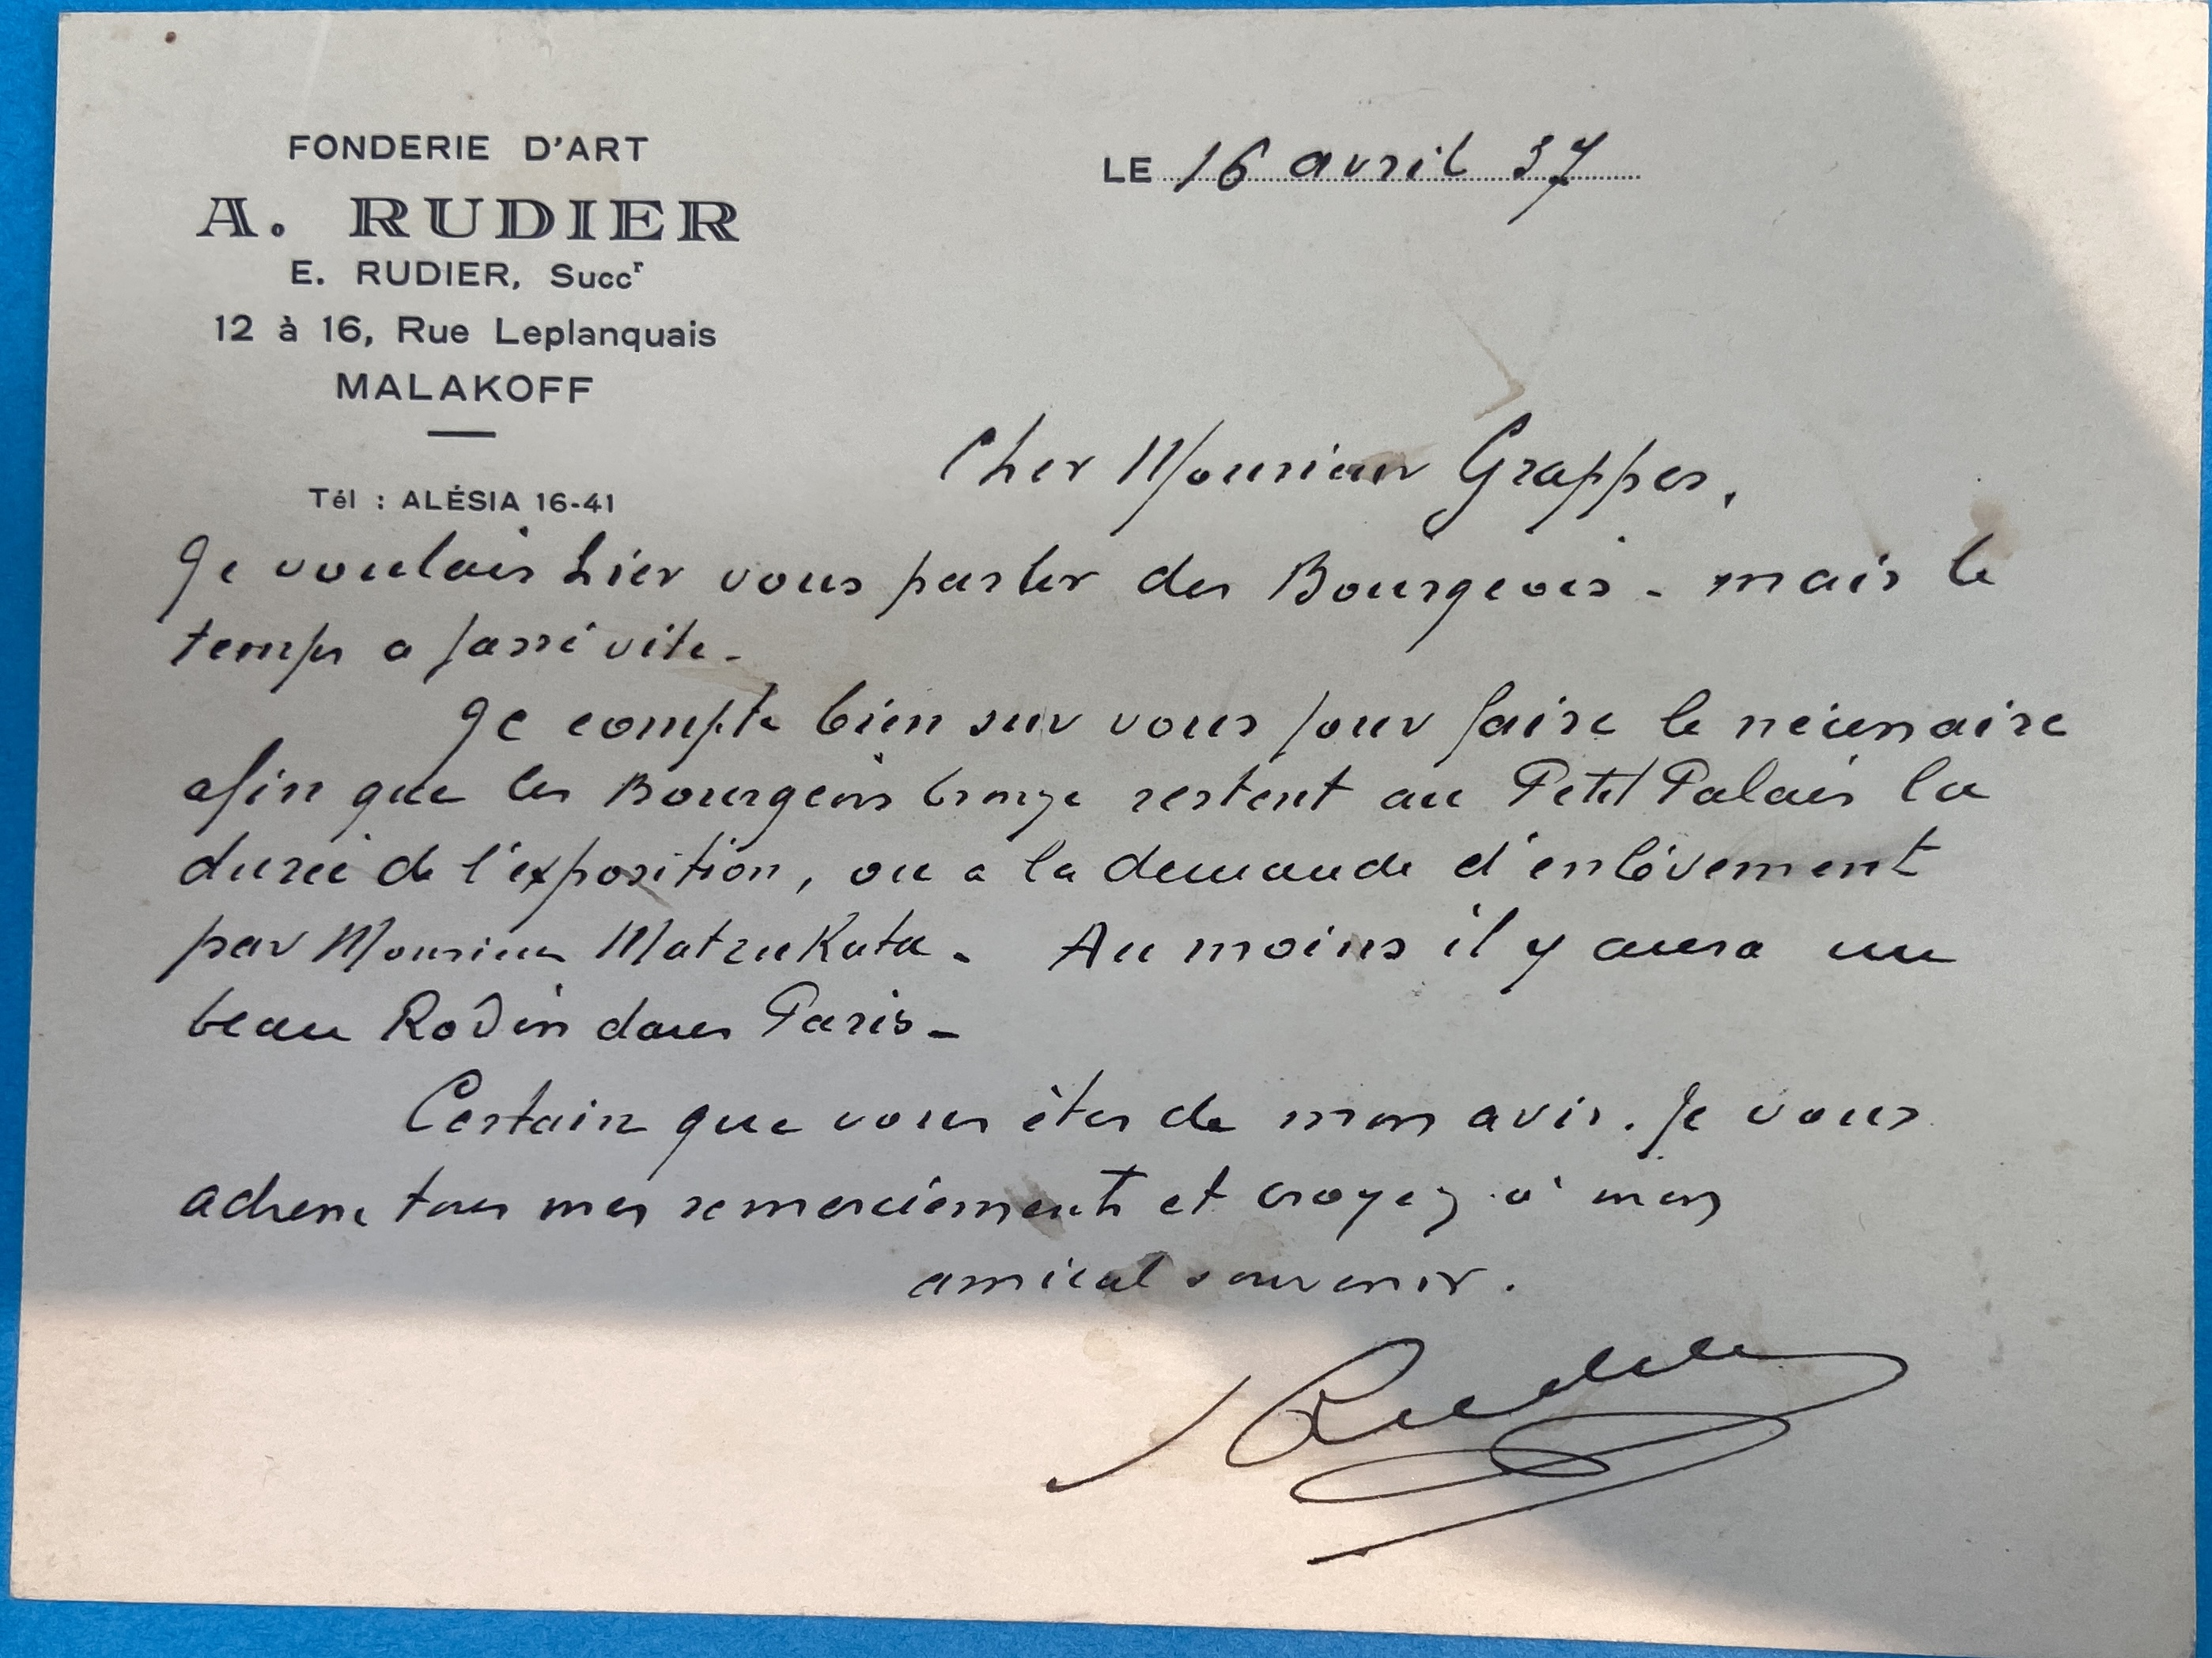 FONDERIE D'ART
A. RUDIER
E. RUDIER, Succr
12 à 16, Rue Leplanquais
MALAKOFF
Tél : ALÉSIA 16-41
LE 16 avril 37
Cher Monsieur Grappes,
Je voulais hier vous parler des Bourgeois - mais le
temps a passé vite -
Je compte bien sur vous pour faire le nécessaire
afin que les Bourgeois bronze restent au Petit Palais la
durée de l'exposition, ou a la demande d'enlèvement
par Monsieur MatzuKata - Au moins il y aura un
beau Rodin dans Paris -
Certain que vous êtes de mon avis. Je vous
adresse tous mes remerciements et croyez à mon
amical souvenir.
Rudier